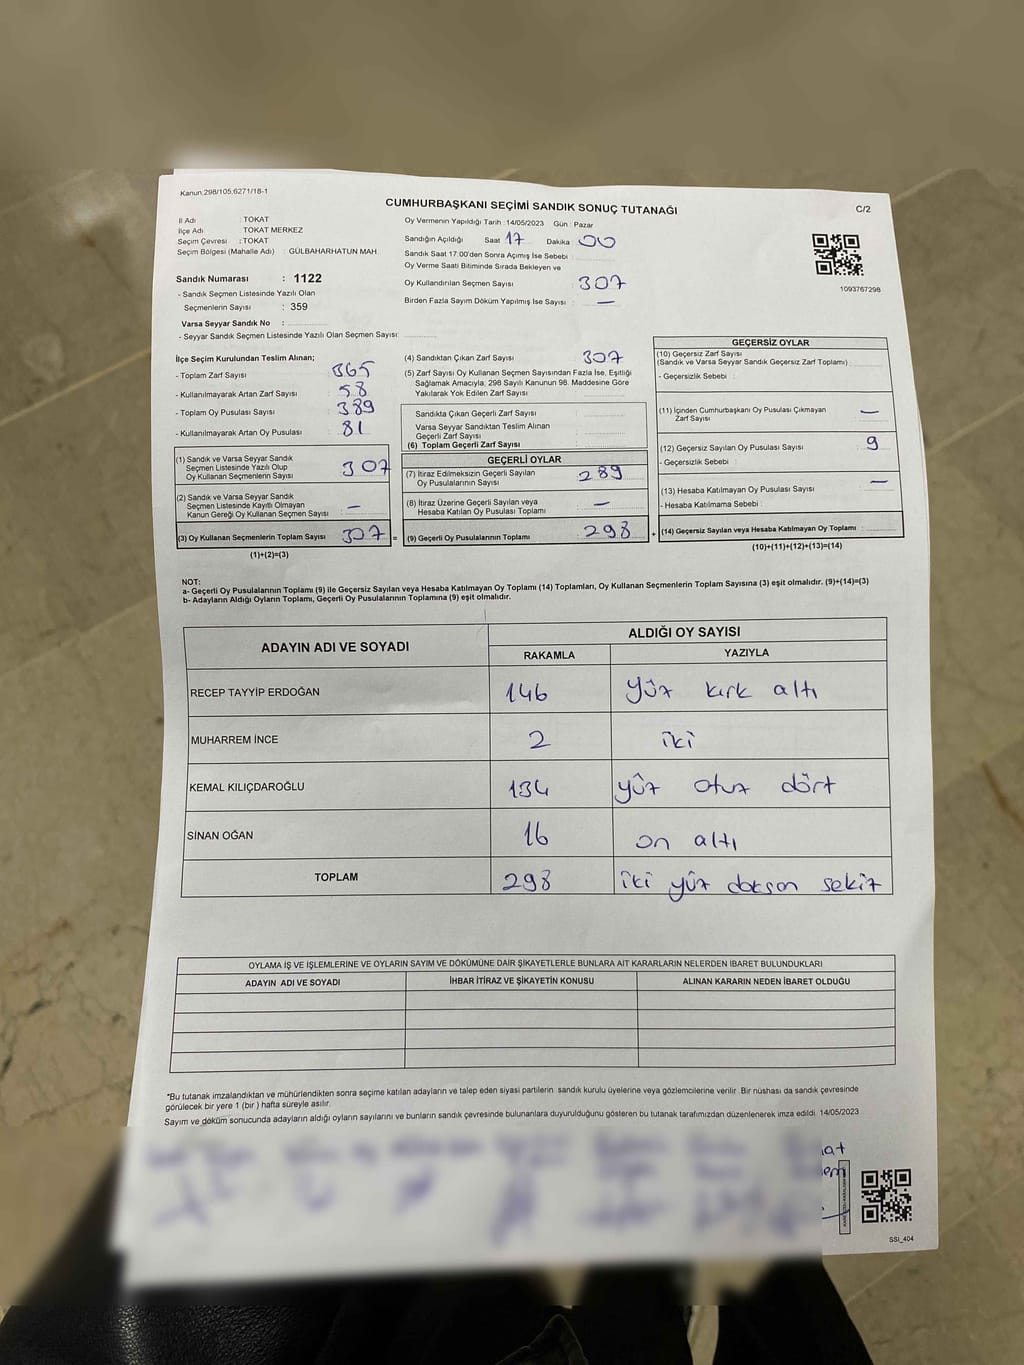 Kanun.298/105,6271/18-1
CUMHURBAŞKANI SEÇİMİ SANDIK SONUÇ TUTANAĞI
C/2
İl Adı : TOKAT
İlçe Adı : TOKAT MERKEZ
Seçim Çevresi : TOKAT
Seçim Bölgesi (Mahalle Adı) : GÜLBAHARHATUN MAH.
Sandık Numarası : 1122
- Sandık Seçmen Listesinde Yazılı Olan
Seçmenlerin Sayısı : 359
Varsa Seyyar Sandık No :
- Seyyar Sandık Seçmen Listesinde Yazılı Olan Seçmen Sayısı:
Oy Vermenin Yapıldığı Tarih :14/05/2023 Gün : Pazar
Sandığın Açıldığı Saat 17 Dakika 00
Sandık Saat 17:00'den Sonra Açımış İse Sebebi :
Oy Verme Saati Bitiminde Sırada Bekleyen ve
Oy Kullandırılan Seçmen Sayısı : 307
Birden Fazla Sayım Döküm Yapılmış İse Sayısı : —
1093767298
İlçe Seçim Kurulundan Teslim Alınan;
- Toplam Zarf Sayısı : 365
- Kullanılmayarak Artan Zarf Sayısı : 58
- Toplam Oy Pusulası Sayısı : 389
- Kullanılmayarak Artan Oy Pusulası : 81
(1) Sandık ve Varsa Seyyar Sandık
Seçmen Listesinde Yazılı Olup
Oy Kullanan Seçmenlerin Sayısı : 307
(2) Sandık ve Varsa Seyyar Sandık
Seçmen Listesinde Kayıtlı Olmayan
Kanun Gereği Oy Kullanan Seçmen Sayısı : —
(3) Oy Kullanan Seçmenlerin Toplam Sayısı : 307 =
(1)+(2)=(3)
(4) Sandıktan Çıkan Zarf Sayısı : 307
(5) Zarf Sayısı Oy Kullanan Seçmen Sayısından Fazla İse, Eşitliği
Sağlamak Amacıyla; 298 Sayılı Kanunun 98. Maddesine Göre
Yakılarak Yok Edilen Zarf Sayısı :
Sandıkta Çıkan Geçerli Zarf Sayısı :
Varsa Seyyar Sandıktan Teslim Alınan
Geçerli Zarf Sayısı :
(6) Toplam Geçerli Zarf Sayısı :
GEÇERLİ OYLAR
(7) İtiraz Edilmeksizin Geçerli Sayılan
Oy Pusulalarının Sayısı : 289
(8) İtiraz Üzerine Geçerli Sayılan veya
Hesaba Katılan Oy Pusulası Toplamı : —
(9) Geçerli Oy Pusulalarının Toplamı : 298 +
GEÇERSİZ OYLAR
(10) Geçersiz Zarf Sayısı
(Sandık ve Varsa Seyyar Sandık Geçersiz Zarf Toplamı) :
- Geçersizlik Sebebi :
(11) İçinden Cumhurbaşkanı Oy Pusulası Çıkmayan
Zarf Sayısı : —
(12) Geçersiz Sayılan Oy Pusulası Sayısı : 9
- Geçersizlik Sebebi :
(13) Hesaba Katılmayan Oy Pusulası Sayısı : —
- Hesaba Katılmama Sebebi :
(14) Geçersiz Sayılan veya Hesaba Katılmayan Oy Toplamı :
(10)+(11)+(12)+(13)=(14)
NOT:
a- Geçerli Oy Pusulalarının Toplamı (9) ile Geçersiz Sayılan veya Hesaba Katılmayan Oy Toplamı (14) Toplamları, Oy Kullanan Seçmenlerin Toplam Sayısına (3) eşit olmalıdır. (9)+(14)=(3)
b- Adayların Aldığı Oyların Toplamı, Geçerli Oy Pusulalarının Toplamına (9) eşit olmalıdır.
ADAYIN ADI VE SOYADI
ALDIĞI OY SAYISI
RAKAMLA YAZIYLA
RECEP TAYYİP ERDOĞAN 146 yüz kırk altı
MUHARREM İNCE 2 iki
KEMAL KILIÇDAROĞLU 134 yüz otuz dört
SİNAN OĞAN 16 on altı
TOPLAM 298 iki yüz doksan sekiz
OYLAMA İŞ VE İŞLEMLERİNE VE OYLARIN SAYIM VE DÖKÜMÜNE DAİR ŞİKAYETLERLE BUNLARA AİT KARARLARIN NELERDEN İBARET BULUNDUKLARI
ADAYIN ADI VE SOYADI İHBAR İTİRAZ VE ŞİKAYETİN KONUSU ALINAN KARARIN NEDEN İBARET OLDUĞU
*Bu tutanak imzalandıktan ve mühürlendikten sonra seçime katılan adayların ve talep eden siyasi partilerin sandık kurulu üyelerine veya gözlemcilerine verilir. Bir nüshası da sandık çevresinde
görülecek bir yere 1 (bir ) hafta süreyle asılır.
Sayım ve döküm sonucunda adayların aldığı oyların sayılarını ve bunların sandık çevresinde bulunanlara duyurulduğunu gösteren bu tutanak tarafımızdan düzenlenerek imza edildi. 14/05/2023
SSİ_404